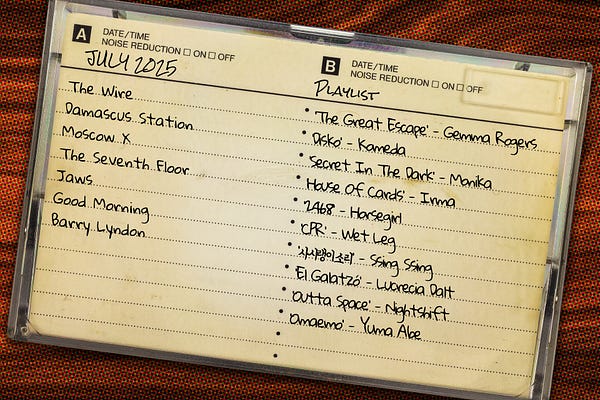 A DATE/TIME
NOISE REDUCTION □ ON □ OFF
JULY 2025
The Wire
Damascus Station
Moscow X
The Seventh Floor
Jaws
Good Morning
Barry Lyndon
B DATE/TIME
NOISE REDUCTION □ ON □ OFF
PLAYLIST
• 'The Great Escape' - Gemma Rogers
• 'Disko' - Kameda
• 'Secret In The Dark' - Monika
• 'House Of Cards' - Inma
• '2468' - Horsegirl
• 'CPR' - Wet Leg
• '사시랭이소리' - Ssing Ssing
• 'El Galatzó' - Lucrecia Dalt
• 'Outta Space' - Nightshift
• 'Omaemo' - Yuma Abe